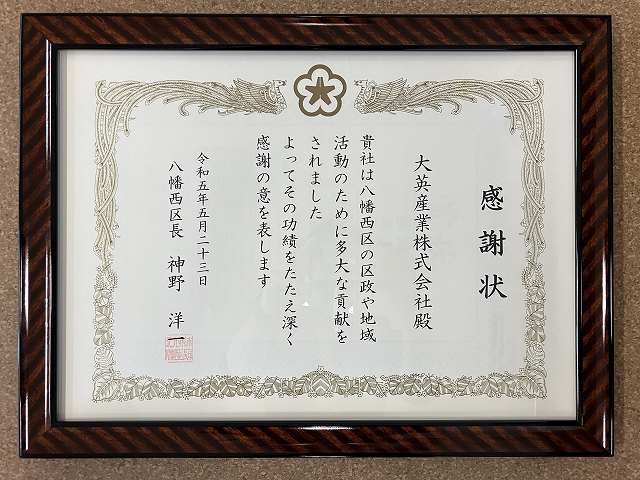 感謝状
大英産業株式会社殿
貴社は八幡西区の区政や地域
活動のために多大な貢献を
されました
よってその功績をたたえ深く
感謝の意を表します
令和五年五月二十三日
八幡西区長 神野 洋一